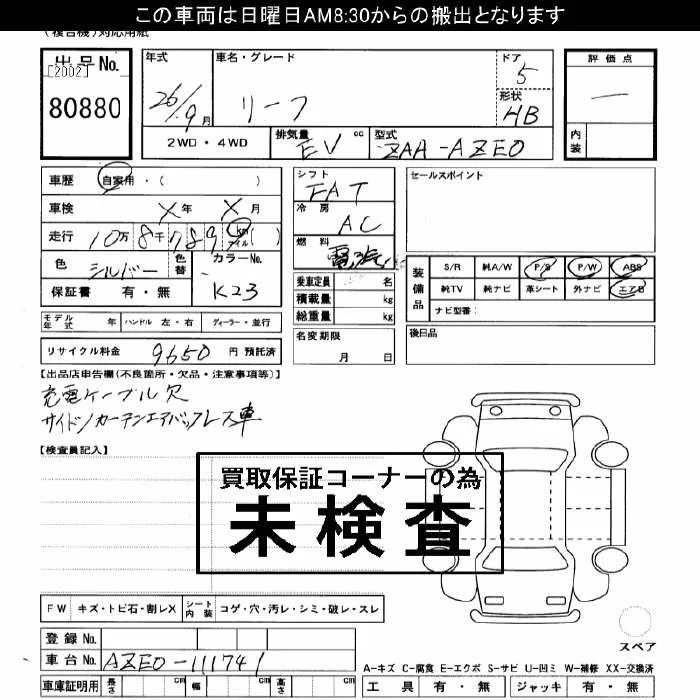 この車両は日曜日AM8:30からの搬出となります
(複合機)対応用紙
出品No.
[2002]
80880
年式
26/9月
車名・グレード
リーフ
ドア
5
形状
HB
評価点
一
内装
2WD・4WD
排気量 EV cc
型式 ZAA-AZE0
車歴 自家用・( )
車検 X年 X月
走行 10万8千789 km マイル ( )
色 シルバー
色替
カラーNo.
K23
保証書 有・無
シフト
FAT
冷房
AC
燃料
電気
乗車定員 名
積載量 kg
総重量 kg
セールスポイント
装備品
S/R 純A/W P/S P/W ABS
純TV 純ナビ 革シート 外ナビ エアB
ナビ型番:
モデル年式 年 ハンドル 左・右 ディーラー・並行
名変期限
月 日
後日品
リサイクル料金 9650 円 預託済
【出品店申告欄(不良箇所・欠品・注意事項等)】
充電ケーブル欠
サイド/カーテンエアバッグレス車
【検査員記入】
買取保証コーナーの為
未検査
FW キズ・トビ石・割レX シート内装 コゲ・穴・汚レ・シミ・破レ・スレ
スペア
登録No.
車台No. AZE0-111741
車庫証明用 長さ cm 幅 cm 高さ cm
A-キズ C-腐食 E-エクボ S-サビ U-凹ミ W-補修 XX-交換済
工具 有・無 ジャッキ 有・無